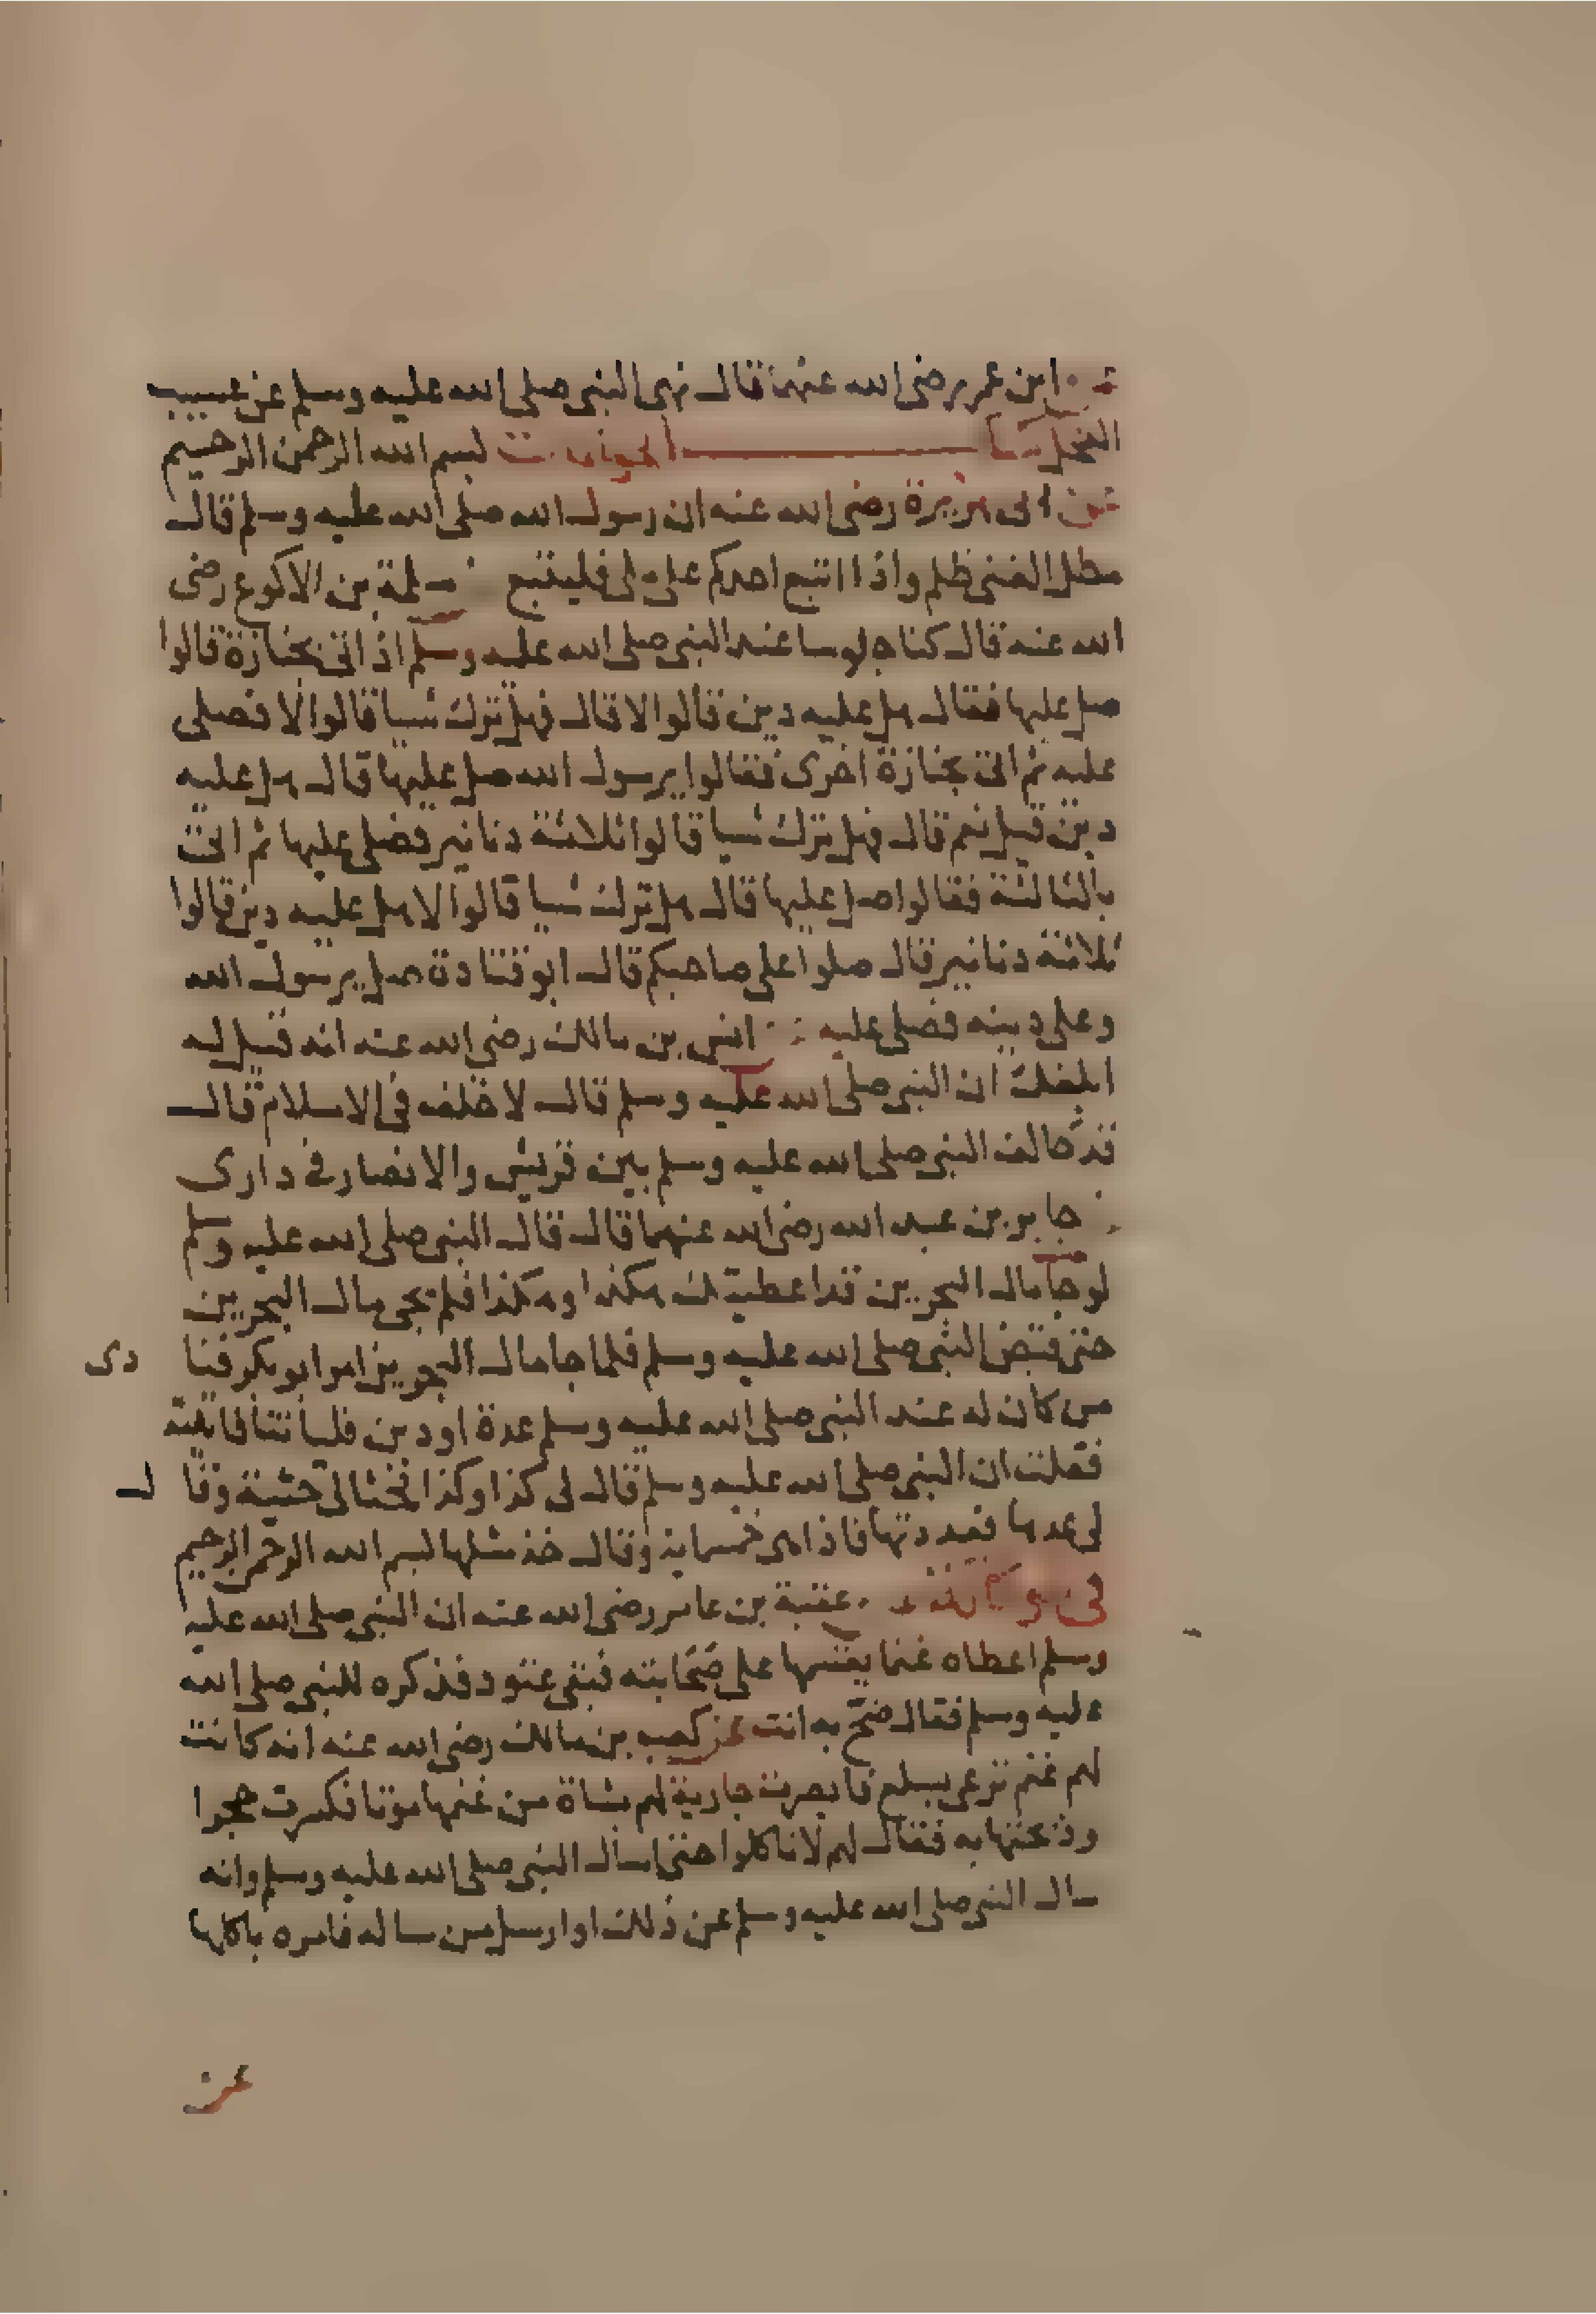 ابن عمر رضى الله عنهما قال نهى النبى صلى الله عليه وسلم عن عسيب
الفحل الحوالات بسم الله الرحمن الرحيم
عن ابى هريرة رضى الله عنه ان رسول الله صلى الله عليه وسلم قال
مطل الغنى ظلم واذا اتبع احدكم على ملى فليتبع سلمة بن الاكوع رضى
الله عنه قال كنا جلوسا عند النبى صلى الله عليه وسلم اذ اتى بجنازة قالوا
صل عليها فقال هل عليه دين قالوا لا قال فهل ترك شيا قالوا لا فصلى
عليه ثم اتى بجنازة اخرى فقالوا يرسول الله صل عليها قال هل عليه
دين قيل نعم قال فهل ترك شيا قالوا ثلاثة دنانير فصلى عليها ثم اتى
بالثالثة فقالوا صل عليها قال هل ترك شيا قالوا لا هل عليه دين قالوا
ثلاثة دنانير قال صلوا على صاحبكم قال ابو قتادة صل يرسول الله
وعلى دينه فصلى عليه انس بن مالك رضى الله عنه انه قيل له
ابلغك ان النبى صلى الله عليه وسلم قال لا حلف فى الاسلام قال
قد حالف النبى صلى الله عليه وسلم بين قريش والانصار فى دارى
جابر بن عبد الله رضى الله عنهما قال قال النبى صلى الله عليه وسلم
لو جا مال البحرين قد اعطيتك هكذا وهكذا فلم يجى مال البحرين
حتى قبض النبى صلى الله عليه وسلم فلما جا مال البحرين امر ابو بكر فنا دى
من كان له عند النبى صلى الله عليه وسلم عدة او دين فلياتنا فاتيته
فقلت ان النبى صلى الله عليه وسلم قال لى كذا وكذا فحثا لى حثية وقا ل
لى عدها فعددتها فاذا هى خمسماية وقال خذ مثليها بسم الله الرحمن الرحيم
عقبة بن عامر رضى الله عنه ان النبى صلى الله عليه
وسلم اعطاه غنما يقسمها على صحابته فبقى عتود فذكره للنبى صلى الله
عليه وسلم فقال ضح به انت عن كعب بن مالك رضى الله عنه انه كانت
لهم غنم ترعى بسلع فابصرت جارية لهم بشاة من غنمها موتا فكسرت حجرا
وذبحتها به فقال لهم لا تاكلوا حتى اسال النبى صلى الله عليه وسلم وانه
سال النبى صلى الله عليه وسلم عن ذلك او ارسل من ساله فامره باكلها
عن